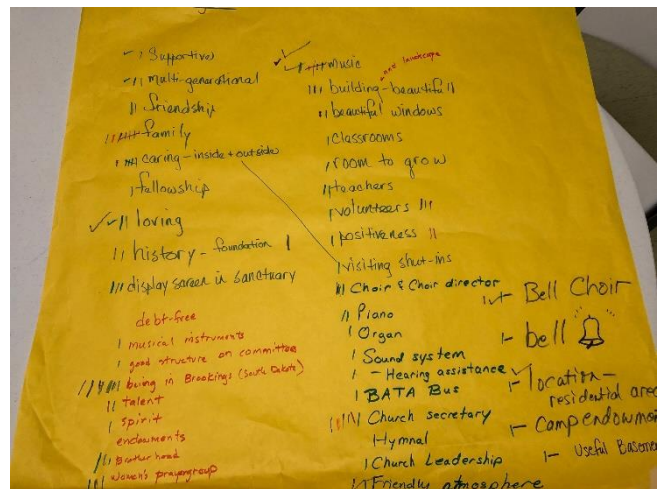 Supportive
multi-generational
friendship
family
caring - inside + outside
fellowship
loving
history - foundation
display screen in sanctuary
debt-free
musical instruments
good structure on committee
being in Brookings (South Dakota)
talent
spirit
endowments
Brotherhood
Women's prayer group
music
and landscape
building - beautiful
beautiful windows
classrooms
room to grow
teachers
volunteers
positiveness
visiting shut-ins
Choir & Choir director
Piano
Organ
Sound system
- Hearing assistance
BATA Bus
Church secretary
Hymnal
Church Leadership
Friendly atmosphere
Bell Choir
bell
location -
residential area
Camp endowmen
Useful Basemen